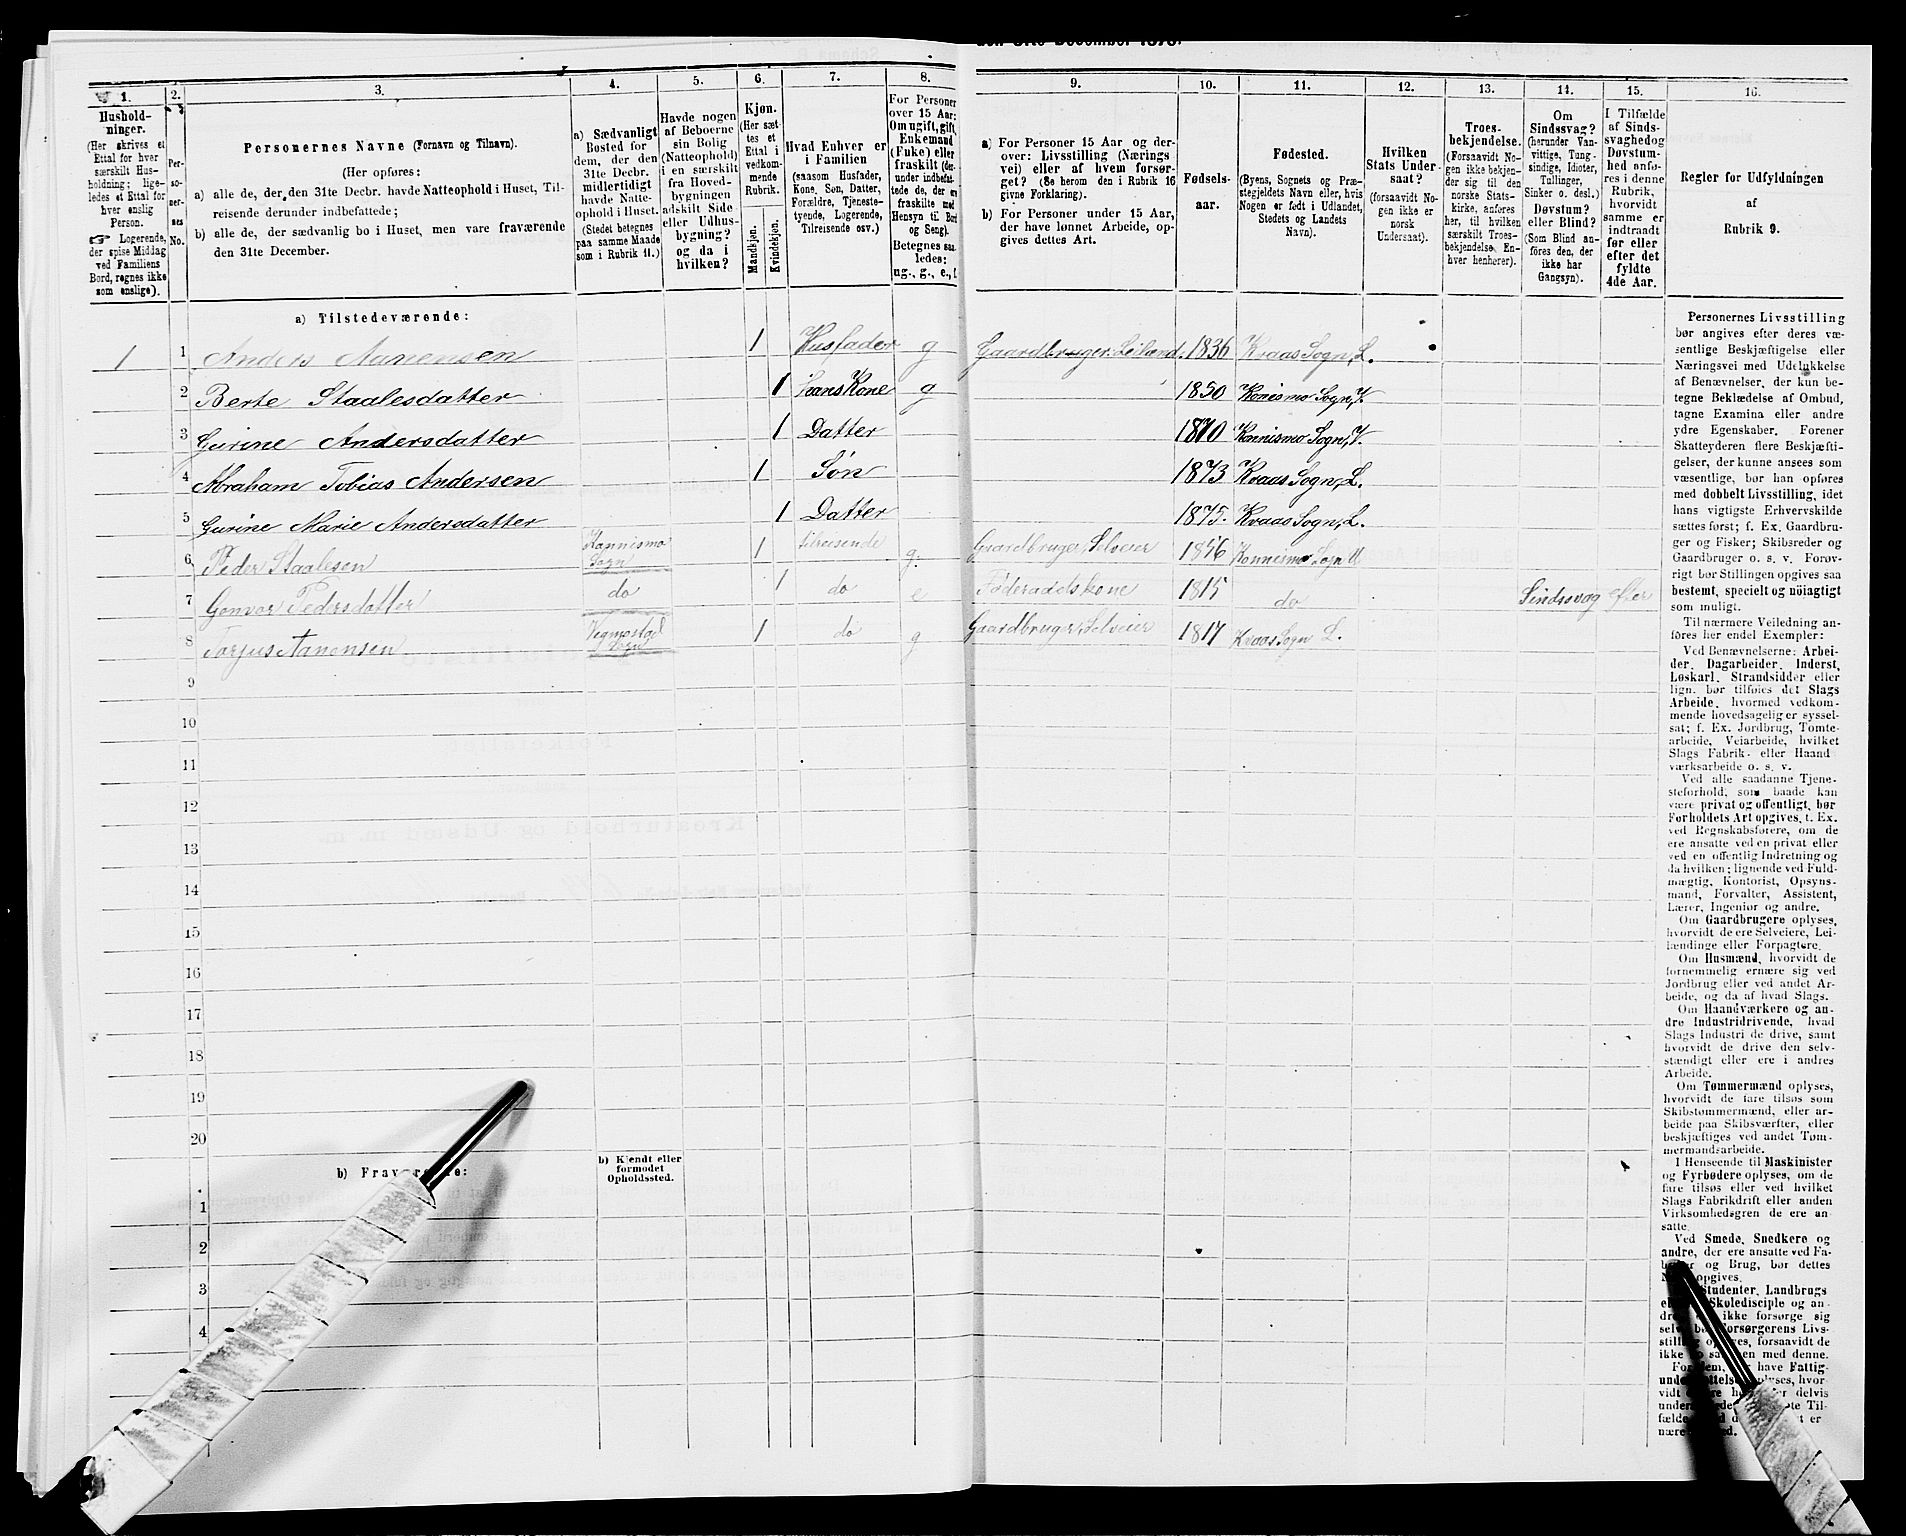 den 31te December 1875.
1.
Hushold-
ninger.
(Her skrives et
Ettal for hver
særskilt Hus-
holdning; lige-
ledes et Ettal for
hver enslig
Person.
Logerende,
der spise Middag
ved Familiens
Bord, regnes ikke
som enslige).
2.
Per-
so-
ner-
nes
No.
3.
Personernes Navne (Fornavn og Tilnavn).
(Her opføres:
a) alle de, der den 31te Decbr. havde Natteophold i Huset, Til-
reisende derunder indbefattede;
b) alle de, der sædvanlig bo i Huset, men vare fraværende
den 31te December.
4.
a) Sædvanligt
Bosted for
dem, der den
31te Decbr.
midlertidigt
havde Natte-
ophold i Huset.
(Stedet betegnes
paa samme Maade
som i Rubrik 11.)
5.
Havde nogen
af Beboerne
sin Bolig
(Natteophold)
i en særskilt
fra Hoved-
bygningen
adskilt Side-
eller Udhus-
bygning?
og da i
hvilken?
6.
Kjøn.
(Her sæt-
tes et
Ettal i
vedkom-
mende
Rubrik.
Mandkjøn.
Kvindekjøn.
7.
Hvad Enhver er
i Familien
(saasom Husfader,
Kone, Søn, Datter,
Forældre, Tjeneste-
tyende, Logerende,
Tilreisende osv.)
8.
For Personer
over 15 Aar:
Om ugift, gift,
Enkemand
(Enke) eller
fraskilt (der-
under indbefat-
tede de, der ere
fraskilte med
Hensyn til Bord
og Seng).
Betegnes saa-
ledes:
ug., g., e., f.
9.
a) For Personer 15 Aar og der-
over: Livsstilling (Nærings-
vei) eller af hvem forsør-
get? (Se herom den i Rubrik 16
givne Forklaring).
b) For Personer under 15 Aar,
der have lønnet Arbeide, op-
gives dettes Art.
10.
Fødsels-
aar.
11.
Fødested.
(Byens, Sognets og Præ-
stegjeldets Navn eller, hvis
Nogen er født i Udlandet,
Stedets og Landets
Navn).
12.
Hvilken
Stats Under-
saat?
(forsaavidt No-
gen ikke er
norsk
Undersaat).
13.
Troes-
bekjendelse.
(Forsaavidt No-
gen ikke bekjen-
der sig til den
norske Stats-
kirke, anføres
her, til hvilken
særskilt Troes-
bekjendelse En-
hver henhører).
14.
Om
Sindssvag?
(herunder Van-
vittige, Tung-
sindige, Idioter,
Tullinger,
Sinker o. desl.)
Døvstum?
eller Blind?
(Som Blind an-
føres den, der
ikke har
Gangsyn).
15.
I Tilfælde
af Sinds-
svaghed og
Døvstum-
hed anfø-
res i denne
Rubrik,
hvorvidt
samme er
indtraadt
før eller
efter det
fyldte
4de Aar.
16.
Regler for Udfyldningen
af
Rubrik 9.
a) Tilstedeværende:
1 1 Anders Aanensen 1 Husfader g Gaardbruger, Leilænd. 1836 Kvaas Sogn, L.
2 Berte Staalesdatter 1 hans Kone g 1850 Konismo Sogn, V.
3 Gurine Andersdatter 1 Datter 1870 Konnismo Sogn, V.
4 Abraham Tobias Andersen 1 Søn 1873 Kvaas Sogn, L.
5 Gurine Marie Andersdatter 1 Datter 1875. Kvaas Sogn, L.
6 Peder Staalesen Konnismo Sogn 1 tilreisende g. Gaardbruger, Selveier 1846 Konnismo Sogn
7 Gonvor Pedersdatter do 1 do e Føderaadskone 1815 do Sindssvag efter
8 Torjus Aanensen Vegmostad Sogn 1 do g Gaardbruger, Selveier 1817 Kvaas Sogn L.
9
10
11
12
13
14
15
16
17
18
19
20
b) Fraværende:
b) Kjendt eller
formodet
Opholdssted.
1
2
3
4
Personernes Livsstilling
bør angives efter deres væ-
sentlige Beskjæftigelse eller
Næringsvei med Udelukkelse
af Benævnelser, der kun be-
tegne Beklædelse af Ombud,
tagne Examina eller andre
ydre Egenskaber. Forener
Skatteyderen flere Beskjæfti-
gelser, der kunne ansees som
væsentlige, bør han opføres
med dobbelt Livsstilling, idet
hans vigtigste Erhvervskilde
sættes først; f. Ex. Gaardbru-
ger og Fisker; Skibsreder og
Gaardbruger o. s. v. Forøv-
rigt bør Stillingen opgives saa
bestemt, specielt og nöiagtigt
som muligt.
Til nærmere Veiledning an-
føres her endel Exempler:
Ved Benævnelserne: Arbei-
der, Dagarbeider, Inderst,
Løskarl, Strandsidder eller
lign. bør tilføies det Slags
Arbeide, hvormed vedkom-
mende hovedsagelig er syssel-
sat; f. Ex. Jordbrug, Tomte-
arbeide, Veiarbeide, hvilket
Slags Fabrik- eller Haand-
værksarbeide o. s. v.
Ved alle saadanne Tjene-
steforhold, som baade kan
være privat og offentligt, bør
Forholdets Art opgives, f. Ex.
ved Regnskabsførere, om de
ere ansatte ved en privat eller
ved en offentlig Indretning og
da hvilken; lignende ved Fuld-
mægtig, Kontorist, Opsyns-
mand, Forvalter, Assistent,
Lærer, Ingeniør og andre.
Om Gaardbrugere oplyses,
hvorvidt de ere Selveiere, Lei-
lændinge eller Forpagtere.
Om Husmænd, hvorvidt de
fornemmelig ernære sig ved
Jordbrug eller ved andet Ar-
beide, og da af hvad Slags.
Om Haandværkere og an-
dre Industridrivende, hvad
Slags Industri de drive, samt
hvorvidt de drive den selv-
stændigt eller ere i andres
Arbeide.
Om Tømmermænd oplyses,
hvorvidt de fare tilsøs som
Skibstømmermænd, eller ar-
beide paa Skibsværfter, eller
beskjæftiges ved andet Tøm-
mermandsarbeide.
I Henseende til Maskinister
og Fyrbødere oplyses, om de
fare tilsøs eller ved hvilket
Slags Fabrikdrift eller anden
Virksomhedsgren de ere an-
satte.
Ved Smede, Snedkere og
andre, der ere ansatte ved Fa-
og Brug, bør dettes
opgives.
Studenter, Landbrugs-
Skoledisciple og an-
ikke forsørge sig
Forsørgerens Livs-
forsaavidt de
ikke med denne.
have Fattig-
hvor-
delvis
Til-
er